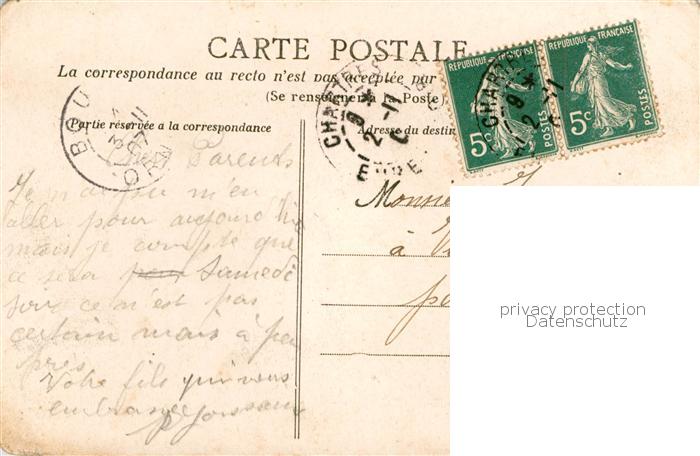 CARTE POSTALE
La correspondance au recto n'est pas acceptée par
(Se renseigner à la Poste)
Partie réservée à la correspondance
Adresse du destin
REPUBLIQUE FRANÇAISE
5c
REPUBLIQUE FRANÇAISE
5c
CHARTRES
9 * 2 -11
CHARTRES
9 * 2 -11
BOU
Chers Parents
Je n'ai pu m'en
aller pour aujourd'hui
mais je compte que
ce sera pour Samedi
soir ce n'est pas
certain mais à peu
près
Votre fils qui vous
embrasse
Monsieur
à
privacy protection
Datenschutz